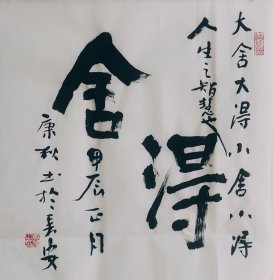 舍得
大舍大得小舍小得
人生之智慧
甲辰正月
康秋书於長安